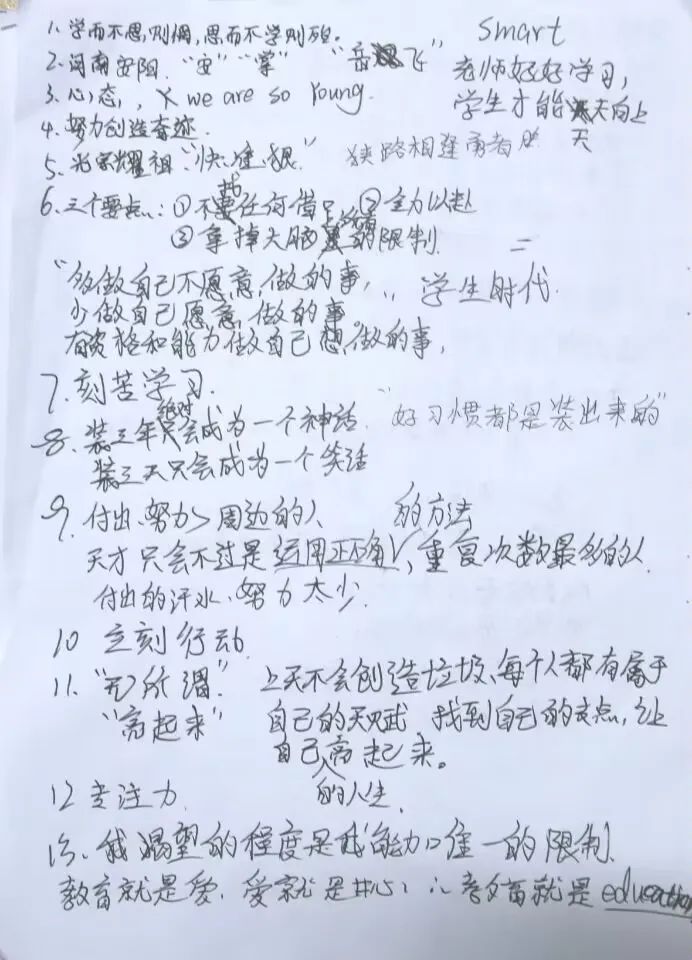 1. 学而不思,则惘,思而不学则殆。
smart
2. 河南安阳. "安" "掌" "岳飞"
老师好好学习,
3. 心态, X we are so young.
学生才能天天向上
4. 努力创造奇迹.
5. 光宗耀祖 "快、准、狠" 狭路相逢勇者胜
6. 三个要点: ①不找任何借口 ②全力以赴
③拿掉大脑里的限制.
"多做自己不愿意做的事, " 学生时代.
少做自己愿意做的事
有资格和能力做自己想做的事,
7. 刻苦学习.
8. 装三年绝对会成为一个神话. "好习惯都是装出来的"
装三天只会成为一个笑话
9. 付出、努力>周边的人
天才只会不过是运用正确的方法, 重复次数最多的人
付出的汗水、努力太少.
10 立刻行动.
11. "无所谓." 上天不会创造垃圾、每个人都有属于
"高起来" 自己的天赋 找到自己的支点, 让
自己的人生高起来。
12 专注力.
13. 我渴望的程度是我能力唯一的限制.
教育就是爱. 爱就是用心 ∴教育就是education